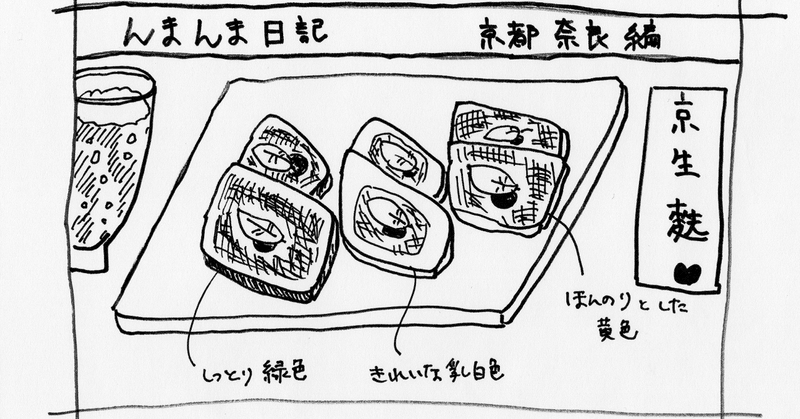 んまんま日記
京都 奈良 編
京生麩♥
ほんのりとした
黄色
しっとり緑色
きれいな乳白色